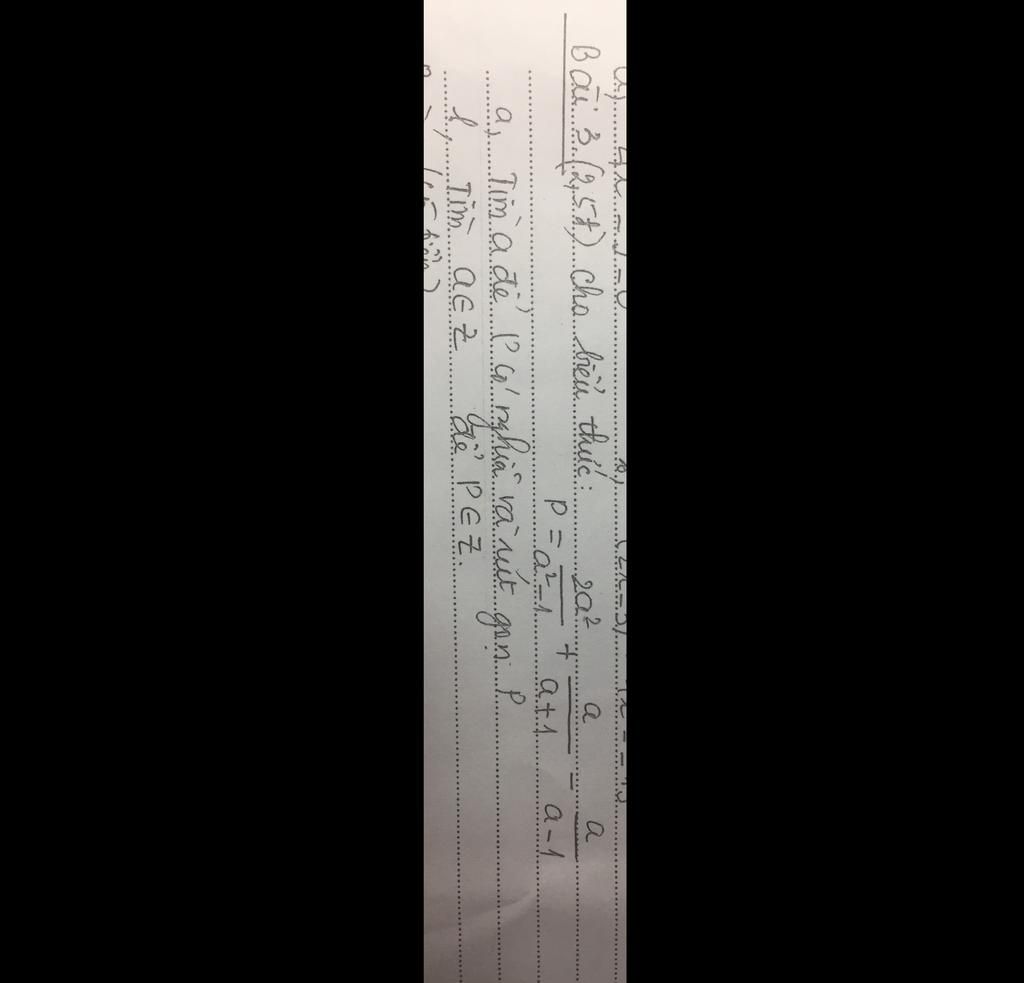 Bài 3 (2,5đ) cho biểu thức:
P = 2a²/a²-1 + a/a+1 - a/a-1
a, Tìm a để P có nghĩa và rút gọn P
b, Tìm a∈Z để P∈Z.